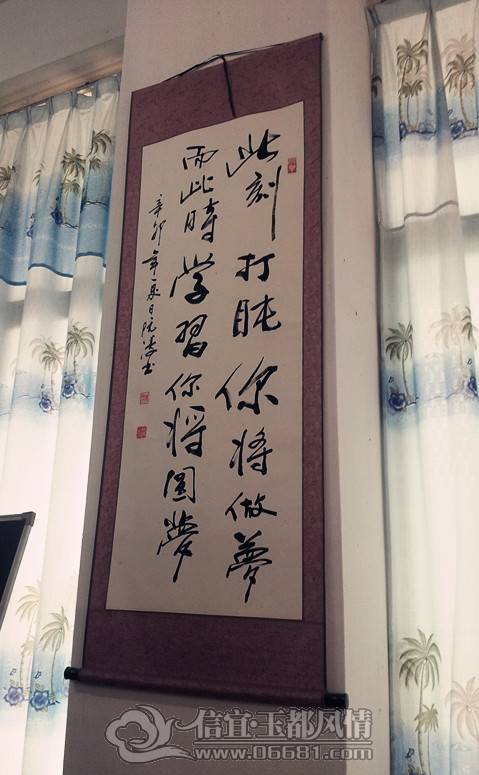 此刻打盹你将做夢
而此時学習你将圆夢
辛卯年夏日阮涛书
信宜·玉都风情
www.06681.com